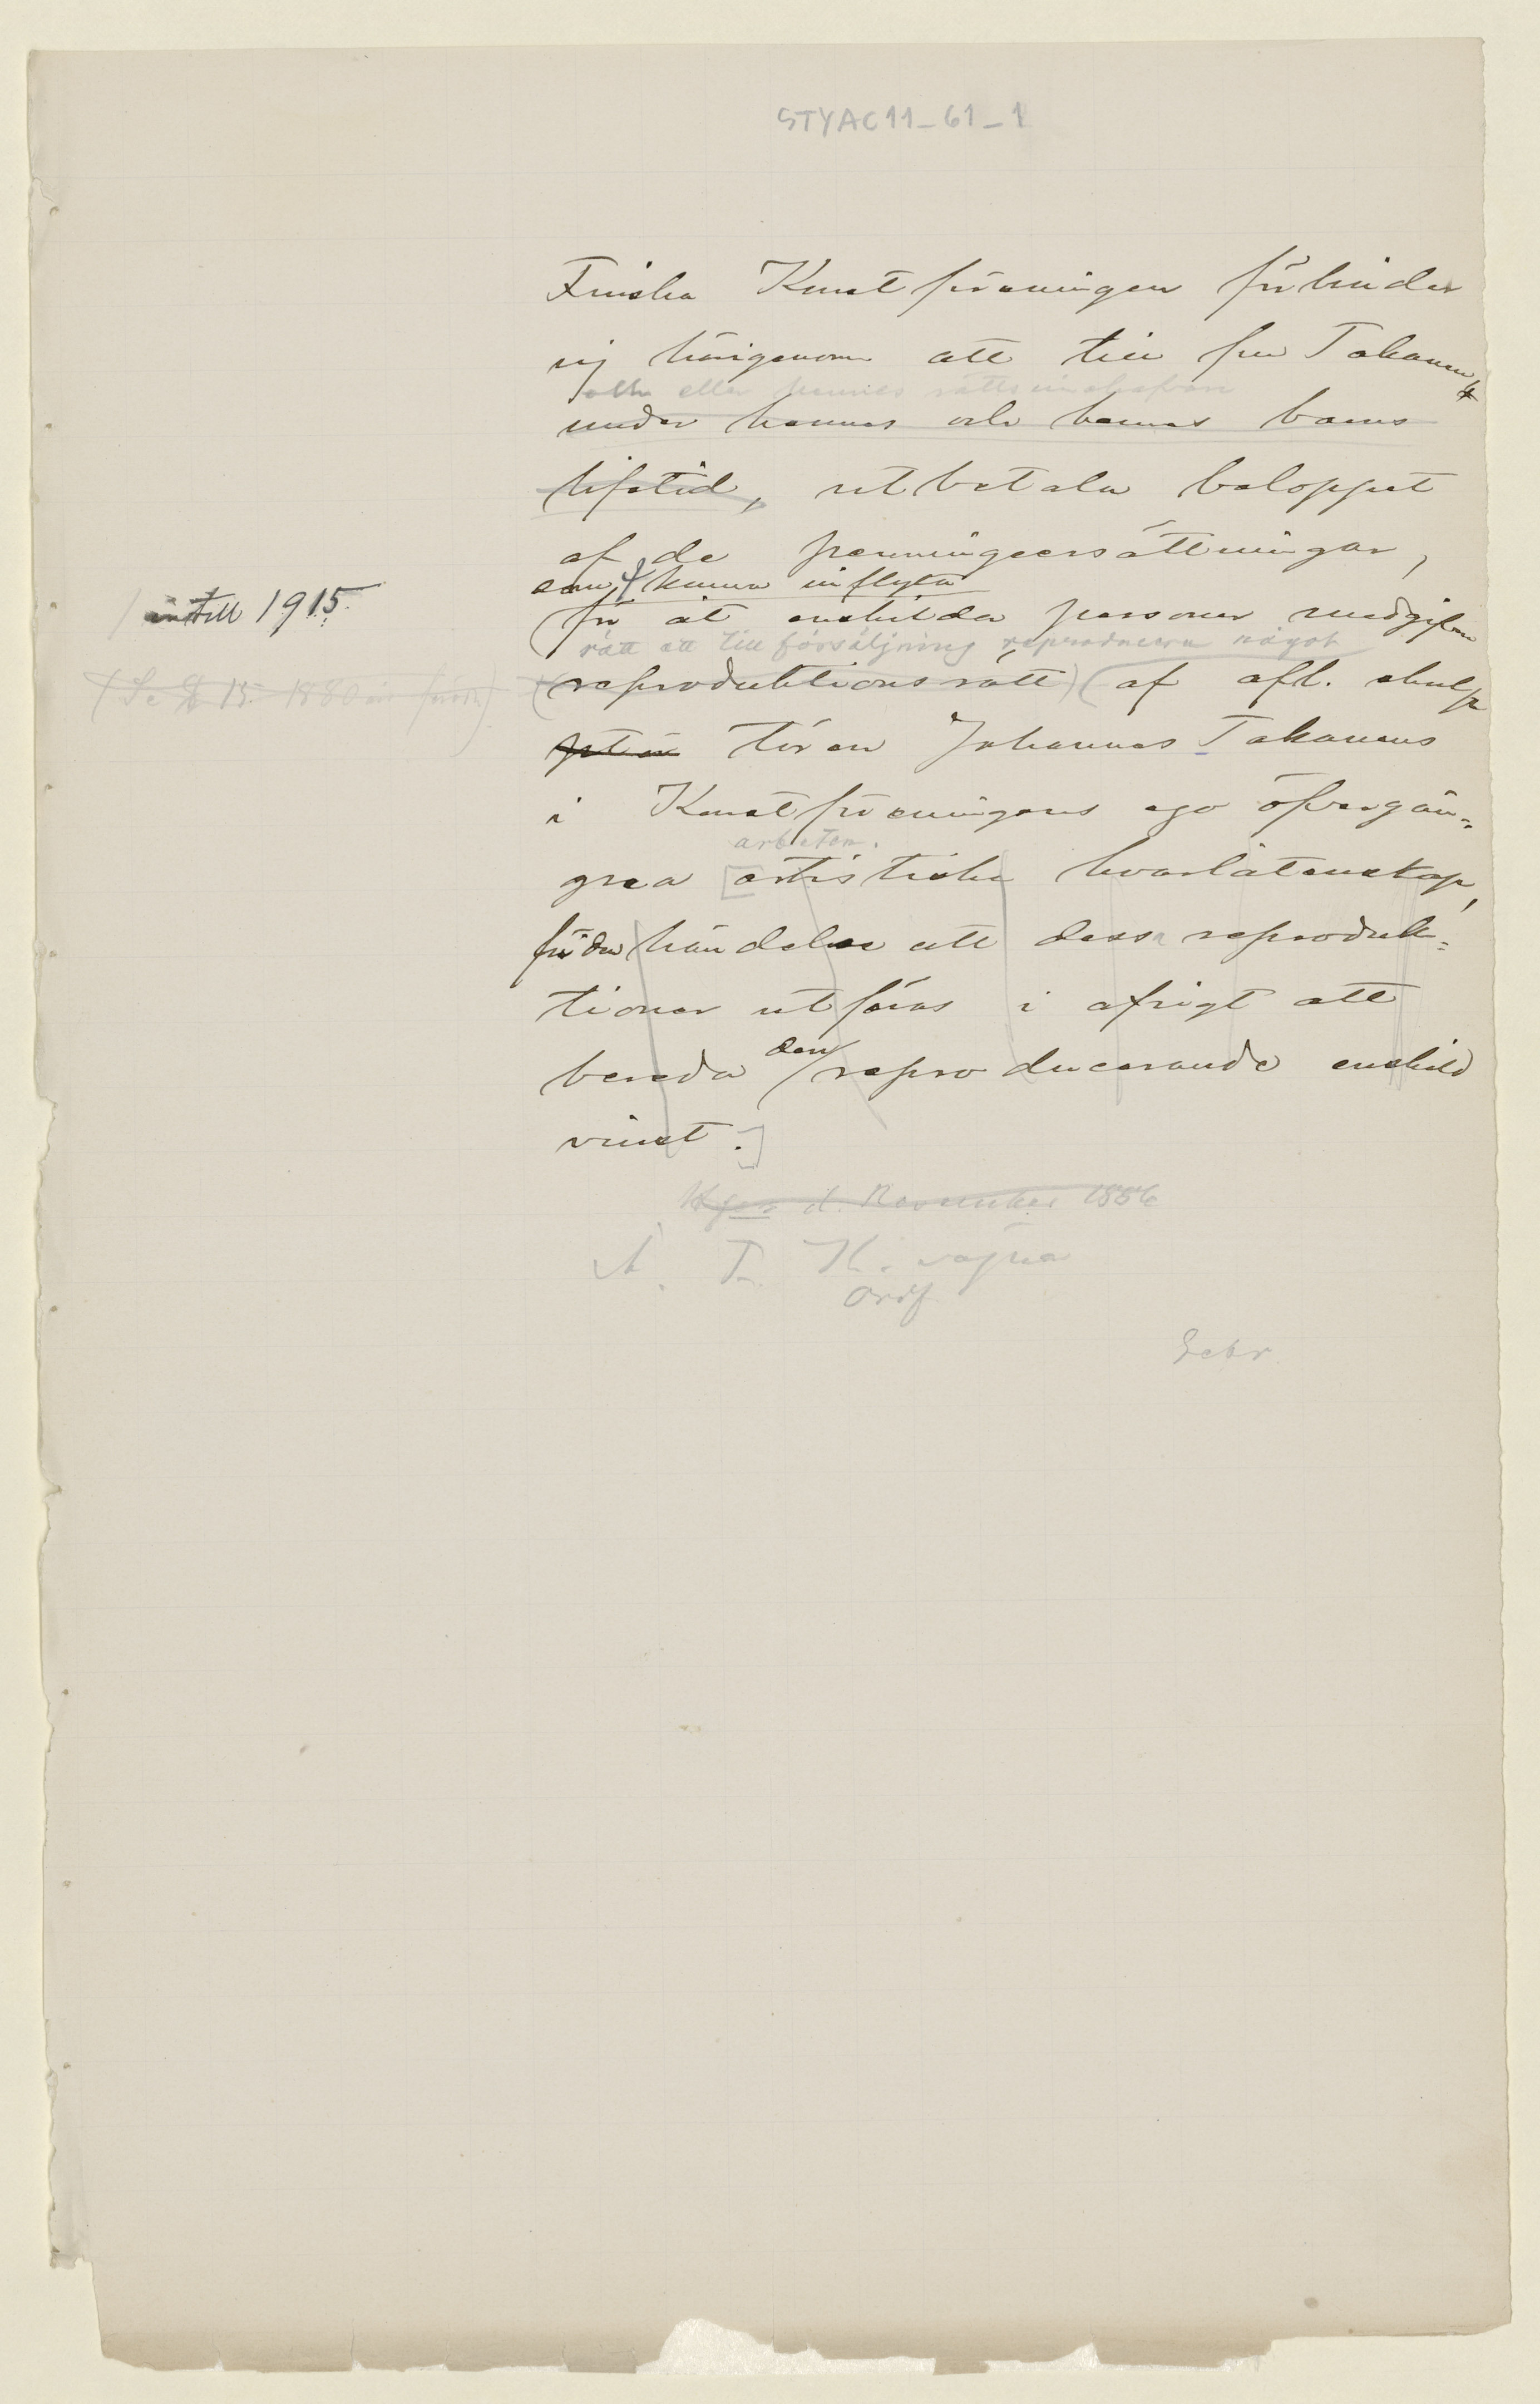 STYAC11-61-1
Finska Konstföreningen förbinder
sig härigenom att till fru Takanen
eller hennes rättsinnehafvare
under hennes och hennes barns
lifstid, utbetala beloppet
af de penningeersättningar,
som kunna inflyta
intill 1915.
för åt enskilda personer medgifven
rätt att till försäljning reproducera något
(reproduktionsrätt) (af afl. skulp
(Se § 15. 1880
tören Johannes Takanens
i Konstföreningens ego öfvergån-
arbeten.
gna [artistiska kvarlåtenskap,
för den händelse att dessa reproduk-
tioner utföras i afsigt att
den
bereda reproducerande enskild
vinst.]
H:fors d. November 1886
Å. F. K. vägnar
Ordf
Sekr